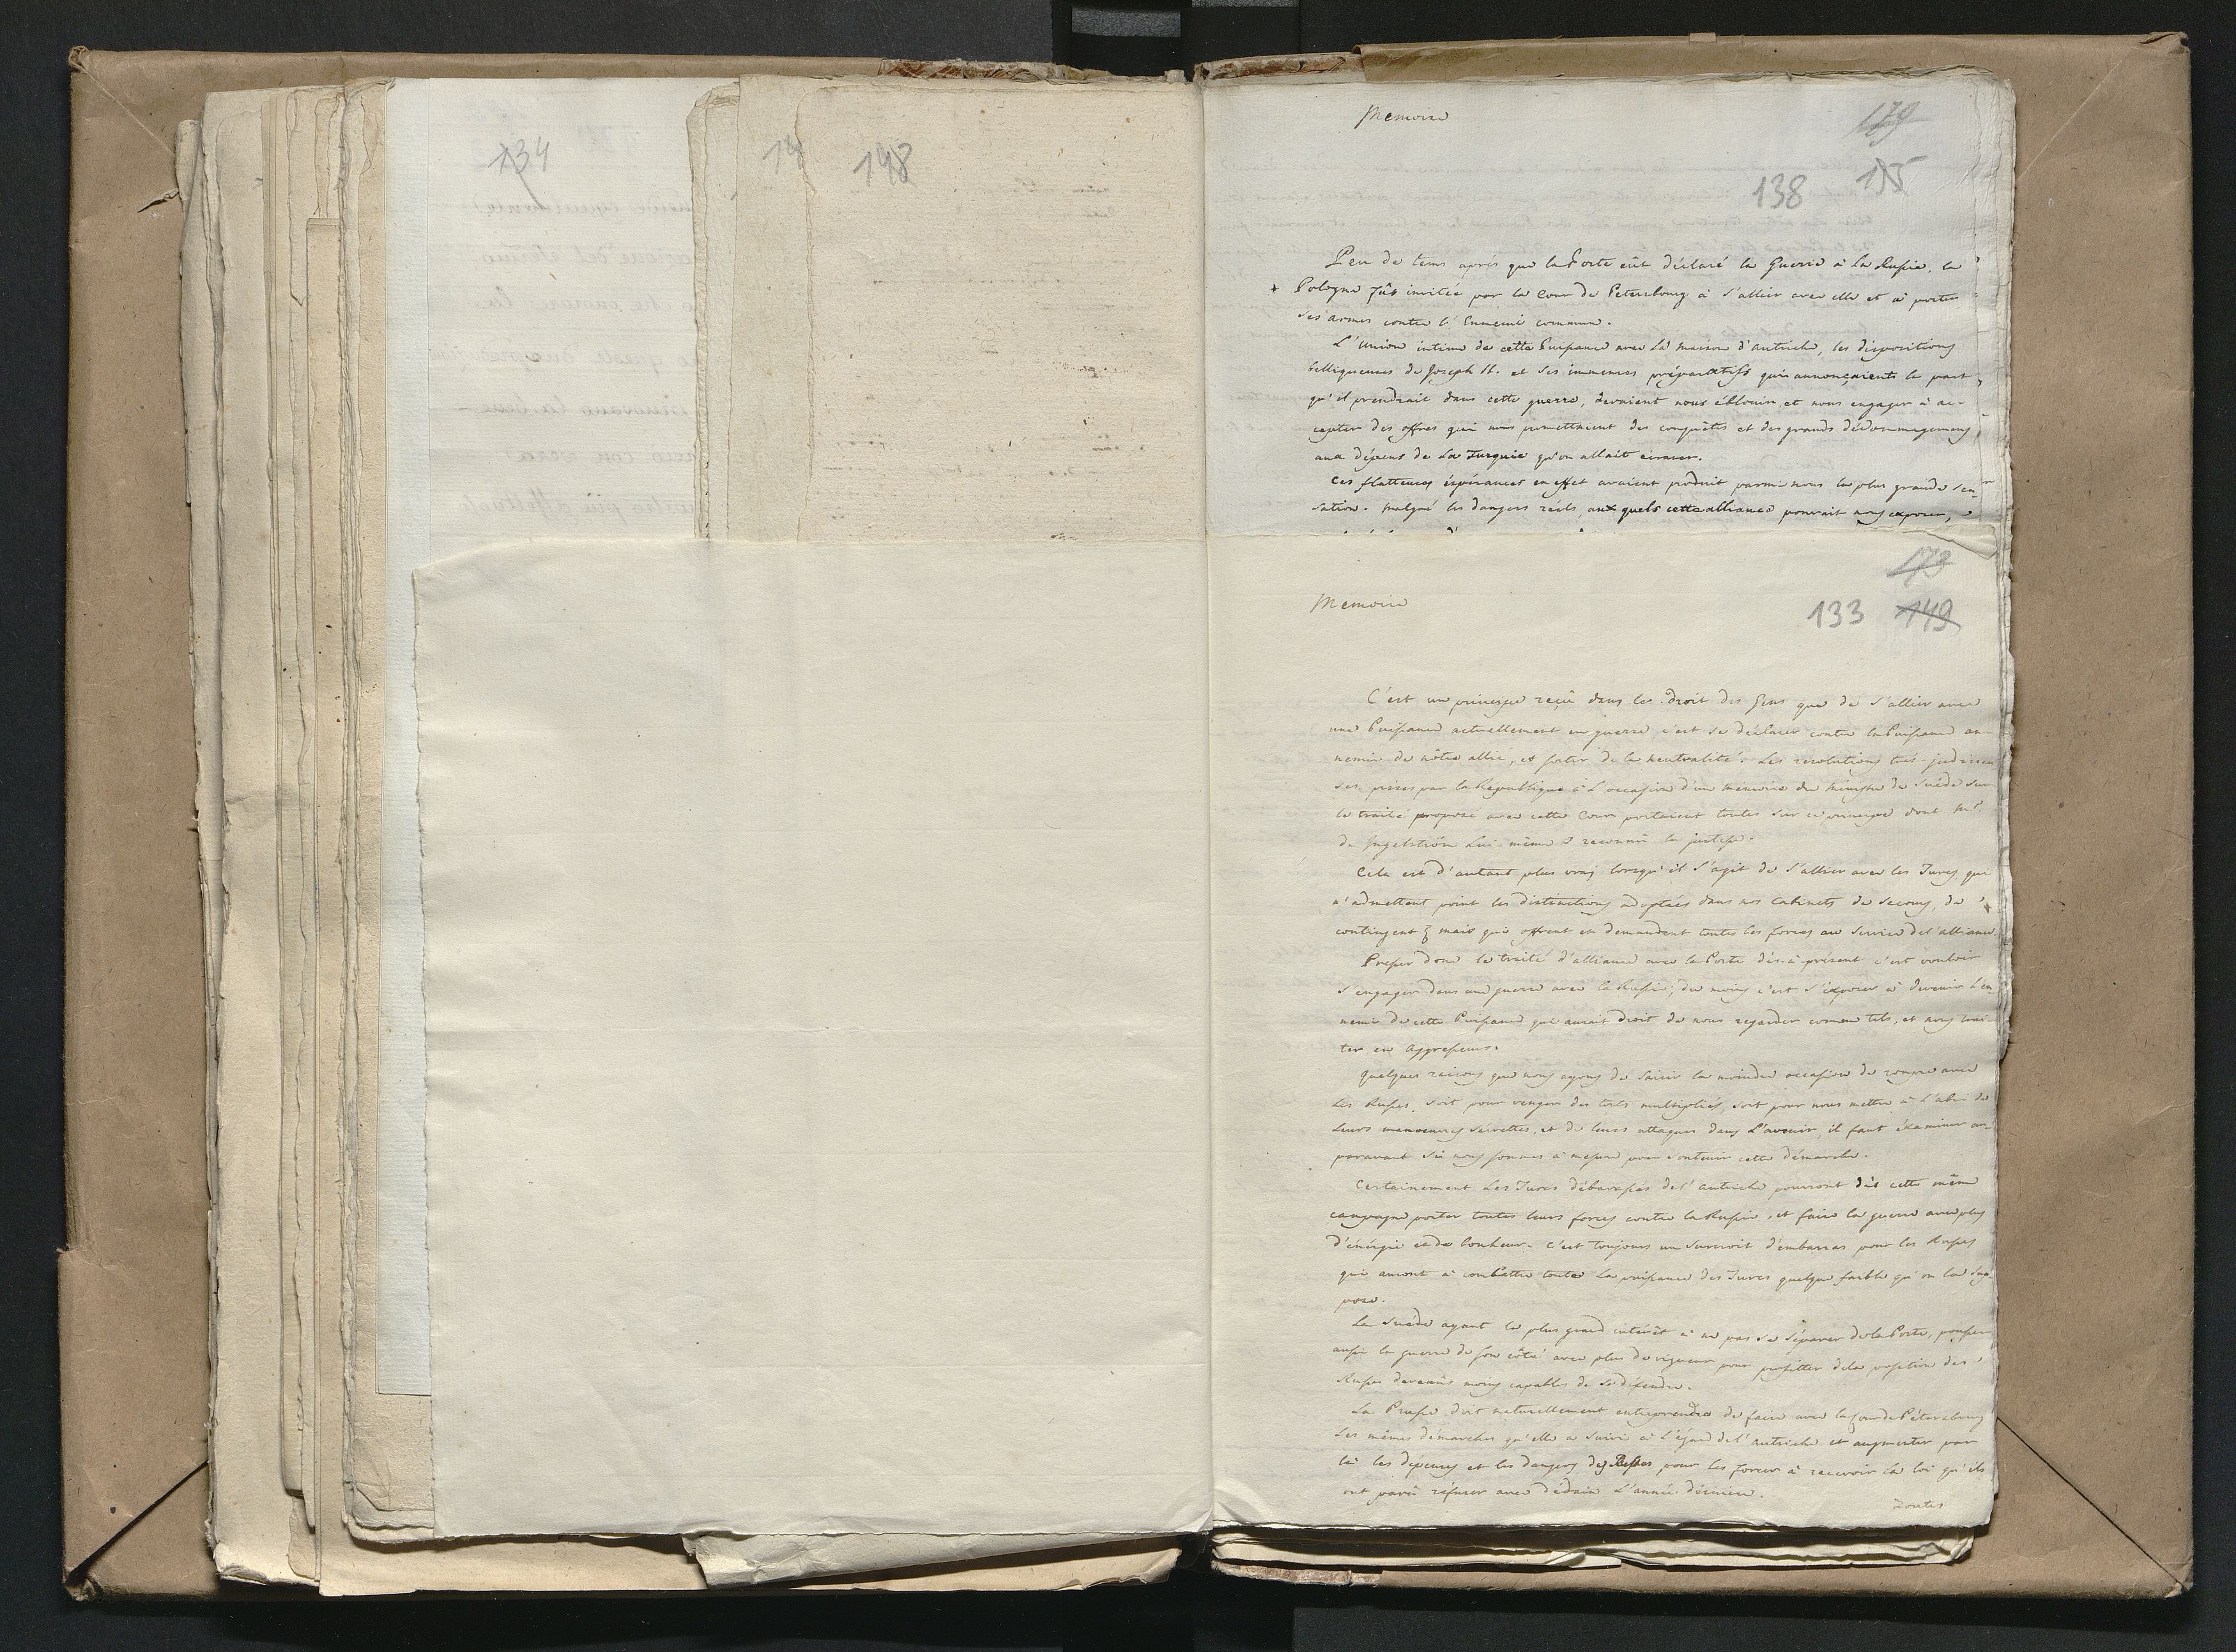 134
14
148
Memoire
179
138 155
Peu de tems après que la Porte eût déclaré la Guerre à La Russie, la
Pologne fût invitée par la Cour de Petersbourg à s'allier avec elle et à porter
ses armes contre l'Ennemi commun.
L'union intime de cette Puissance avec la maison d'autriche, les dispositions
belliqueuses de Joseph II. et ses immenses préparatifs qui annonçaient la part
qu'il prendrait dans cette guerre, devaient nous éblouir, et nous engager à ac-
cepter des offres qui nous promettaient des conquêtes et des grands dédommagemens
aux dépens de la Turquie qu'on allait écraser.
Ces flatteuses éspérances en effet avaient produit parmi nous la plus grande sen-
sation. malgré les dangers réels, aux quels cette alliance pouvait nous exposer,
173
Memoire
133 149
C'est un principe reçû dans le droit des Gens que de s'allier avec
une Puissance actuellement en guerre c'est se déclarer contre la Puissance en-
nemie de nôtre allié, et sortir de la neutralité. Les résolutions très-judicieu
ses prises par la République à l'occasion d'un memoire du Ministre de Suède sur
le traité proposé avec cette Cour portaient toutes sur ce principe dont Mr.
de Engelström lui-même a reconnu la justesse.
Cela est d'autant plus vrai lorsqu'il s'agit de s'allier avec les Turcs qui
n'admettent point les distinctions adoptées dans nos Cabinets de secours, de
contingent mais qui offrent et demandent toutes les forces au service de l'alliance.
Presser donc le traité d'alliance avec la Porte dès-à-présent c'est vouloir
s'engager dans une guerre avec la Russie; du moins c'est s'éxposer à devenir l'en
nemi de cette Puissance qui aurait droit de nous regarder comme tels, et nous trai-
ter en Aggresseurs.
Quelques raisons que nous ayons de saisir la moindre occasion de rompre avec
les Russes, soit pour venger des torts multipliés, soit pour nous mettre à l'abri de
leurs manoeuvres secrettes, et de leurs attaques dans l'avenir, il faut éxaminer au-
paravant si nous sommes à mesure pour soutenir cette démarche.
Certainement les Turcs débarassés de l'autriche pourront dès cette même
campagne porter toutes leurs forces contre la Russie, et faire la guerre avec plus
d'énérgie et de bonheur. C'est toujours un surcroit d'embarras pour les Russes
qui auront à combattre toute la puissance des Turcs quelque faible qu'on la sup-
pose.
La Suède ayant le plus grand intérêt à ne pas se séparer de la Porte, poussera
aussi la guerre de son côté avec plus de vigueur pour profitter de la position des
Russes devenûs moins capables de se défendre.
La Prusse doit naturellement entreprendre de faire avec la Cour de Pétersbourg
les mêmes démarches qu'elle a suivi à l'égard de l'autriche et augmenter par
là les dépenses et les dangers des Russes pour les forcer à recevoir la loi qu'ils
ont parû réfuser avec dédain l'année dérniere.
Toutes